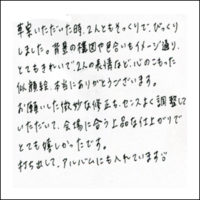 草案いただいた時、2人ともそっくりで、びっくり
しました。背景の構図や色合いもイメージ通り、
とてもきれいで、2人の表情など、心のこもった
似顔絵、本当にありがとうございます。
お願いした微妙な修正も、センスよく調整して
いただいて、会場に合う上品な仕上がりで
とても嬉しかったです。
打ち出して、アルバムにも入れています